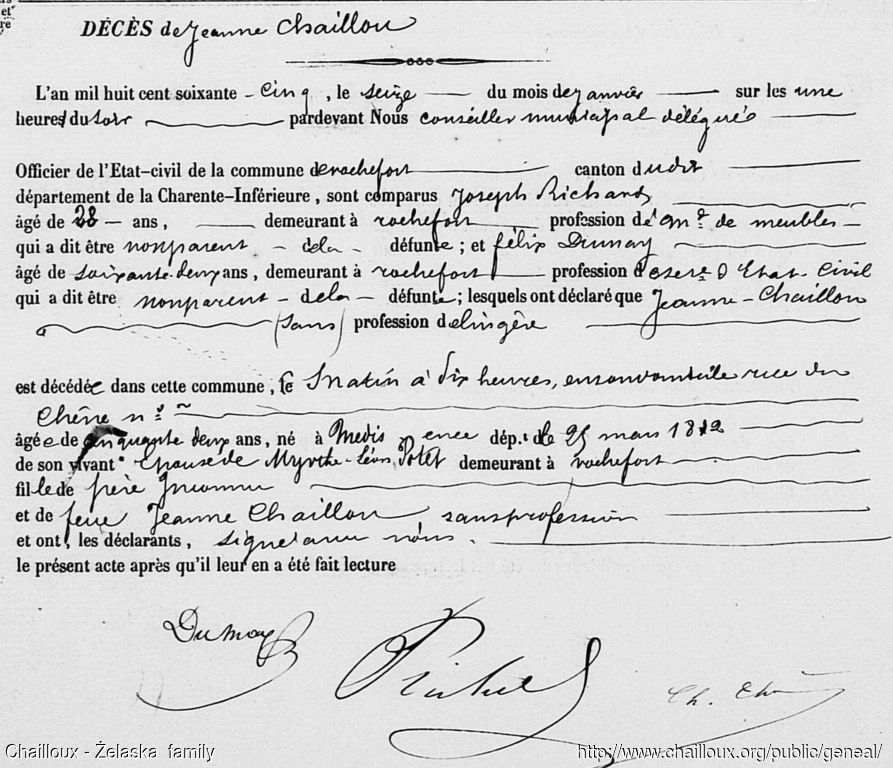 et
re
DÉCÈS de Jeanne Chaillou
L'an mil huit cent soixante - Cinq, le seize du mois de janvier sur les une
heures du soir pardevant Nous conseiller municipal délégué
Officier de l'Etat-civil de la commune de rochefort canton dudit
département de la Charente-Inférieure, sont comparus Joseph Richard
âgé de 28 - ans, demeurant à rochefort profession de md de meubles
qui a dit être nonparent - dela - défunte; et félix Dumay
âgé de soixante-deux ans, demeurant à rochefort profession d Etat-Civil
qui a dit être nonparent - dela - défunte; lesquels ont déclaré que Jeanne - Chaillou
(sans) profession de lingère
est décédée dans cette commune, le matin à dix heures, en son domicile rue du
Chêne n°
âgée de cinquante deux ans, né à Medis dép.t de 25 mars 1812
de son vivant Epouse de Myrthe-Léon Potet demeurant à rochefort
fille de père Inconnu
et de feue Jeanne Chaillou sans profession
et ont, les déclarants, signé avec nous.
le présent acte après qu'il leur en a été fait lecture
Dumay
Richard
Ch.
Chailloux - Želaska family
http://www.chailloux.org/public/geneal/